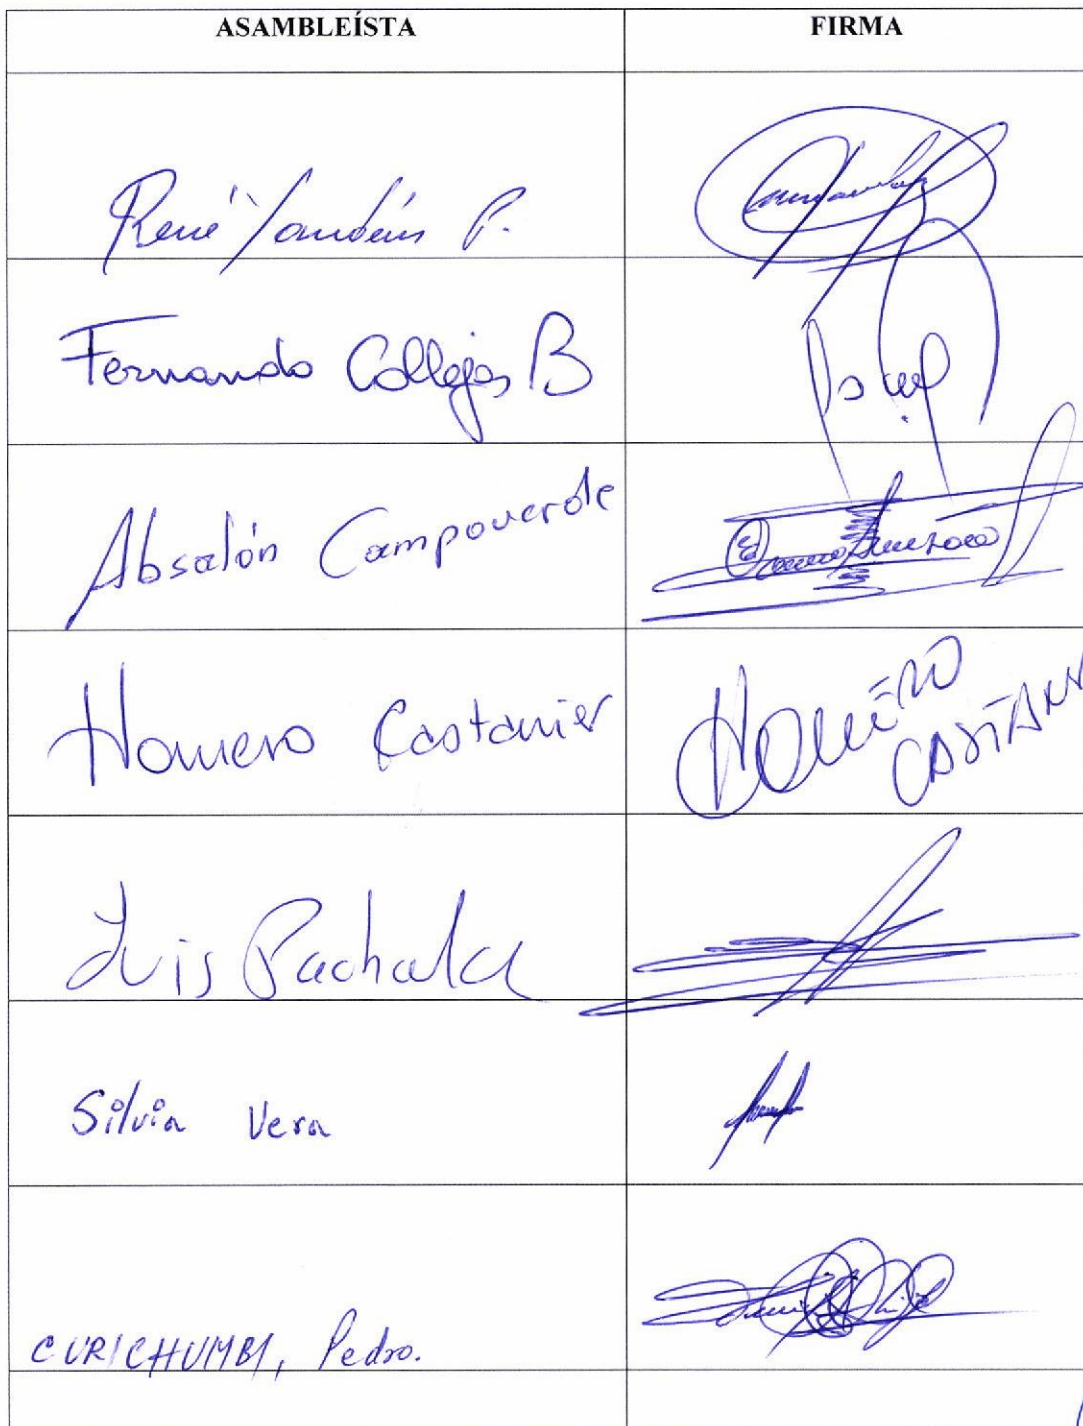 ASAMBLEÍSTA FIRMA
René Yandún P.
Fernando Callejas B
Absalón Campoverde
Homero Castanier HOMERO CASTAN
Luis Pachala
Silvia Vera
CURICHUMBI, Pedro.